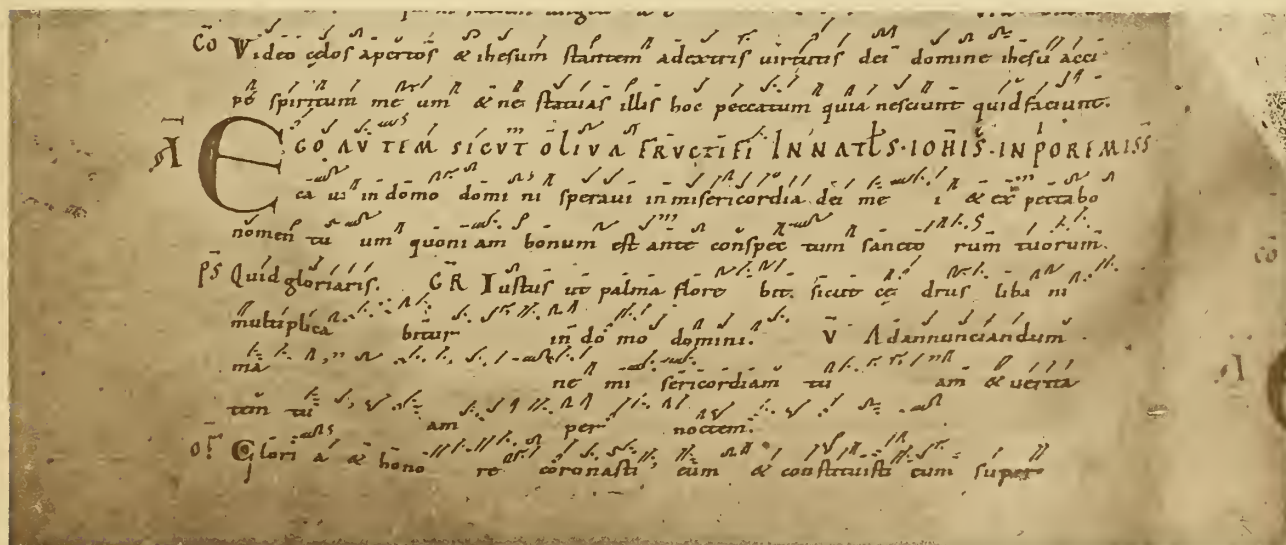 C̄O Video celos apertos & ihesum stantem adextris uirtutis dei domine ihesu acci
pe spiritum me um & ne statuas illis hoc peccatum quia nesciunt quid faciunt.
Ā EGO AVTEM SICVT OLIVA FRVCTIFI IN NATLS · IOHIS · IN PORE MISS
ca ui in domo domi ni speraui in misericordia dei me i & expectabo
nomen tu um quoni am bonum est ante conspec tum sancto rum tuorum.
PS Quid gloriaris. GR Iustus ut palma flore bit. sicut ce drus liba ni
multiplica bitur in do mo domini. V Adannunciandum
ma ne mi sericordiam tu am & uerita
tem tu am per noctem.
OF Glori a & hono re coronasti eum & constituisti eum super